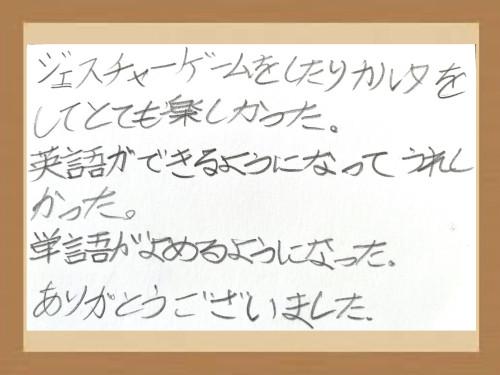 ジェスチャーゲームをしたりカルタを
してとても楽しかった。
英語ができるようになってうれし
かった。
単語がよめるようになった。
ありがとうございました。